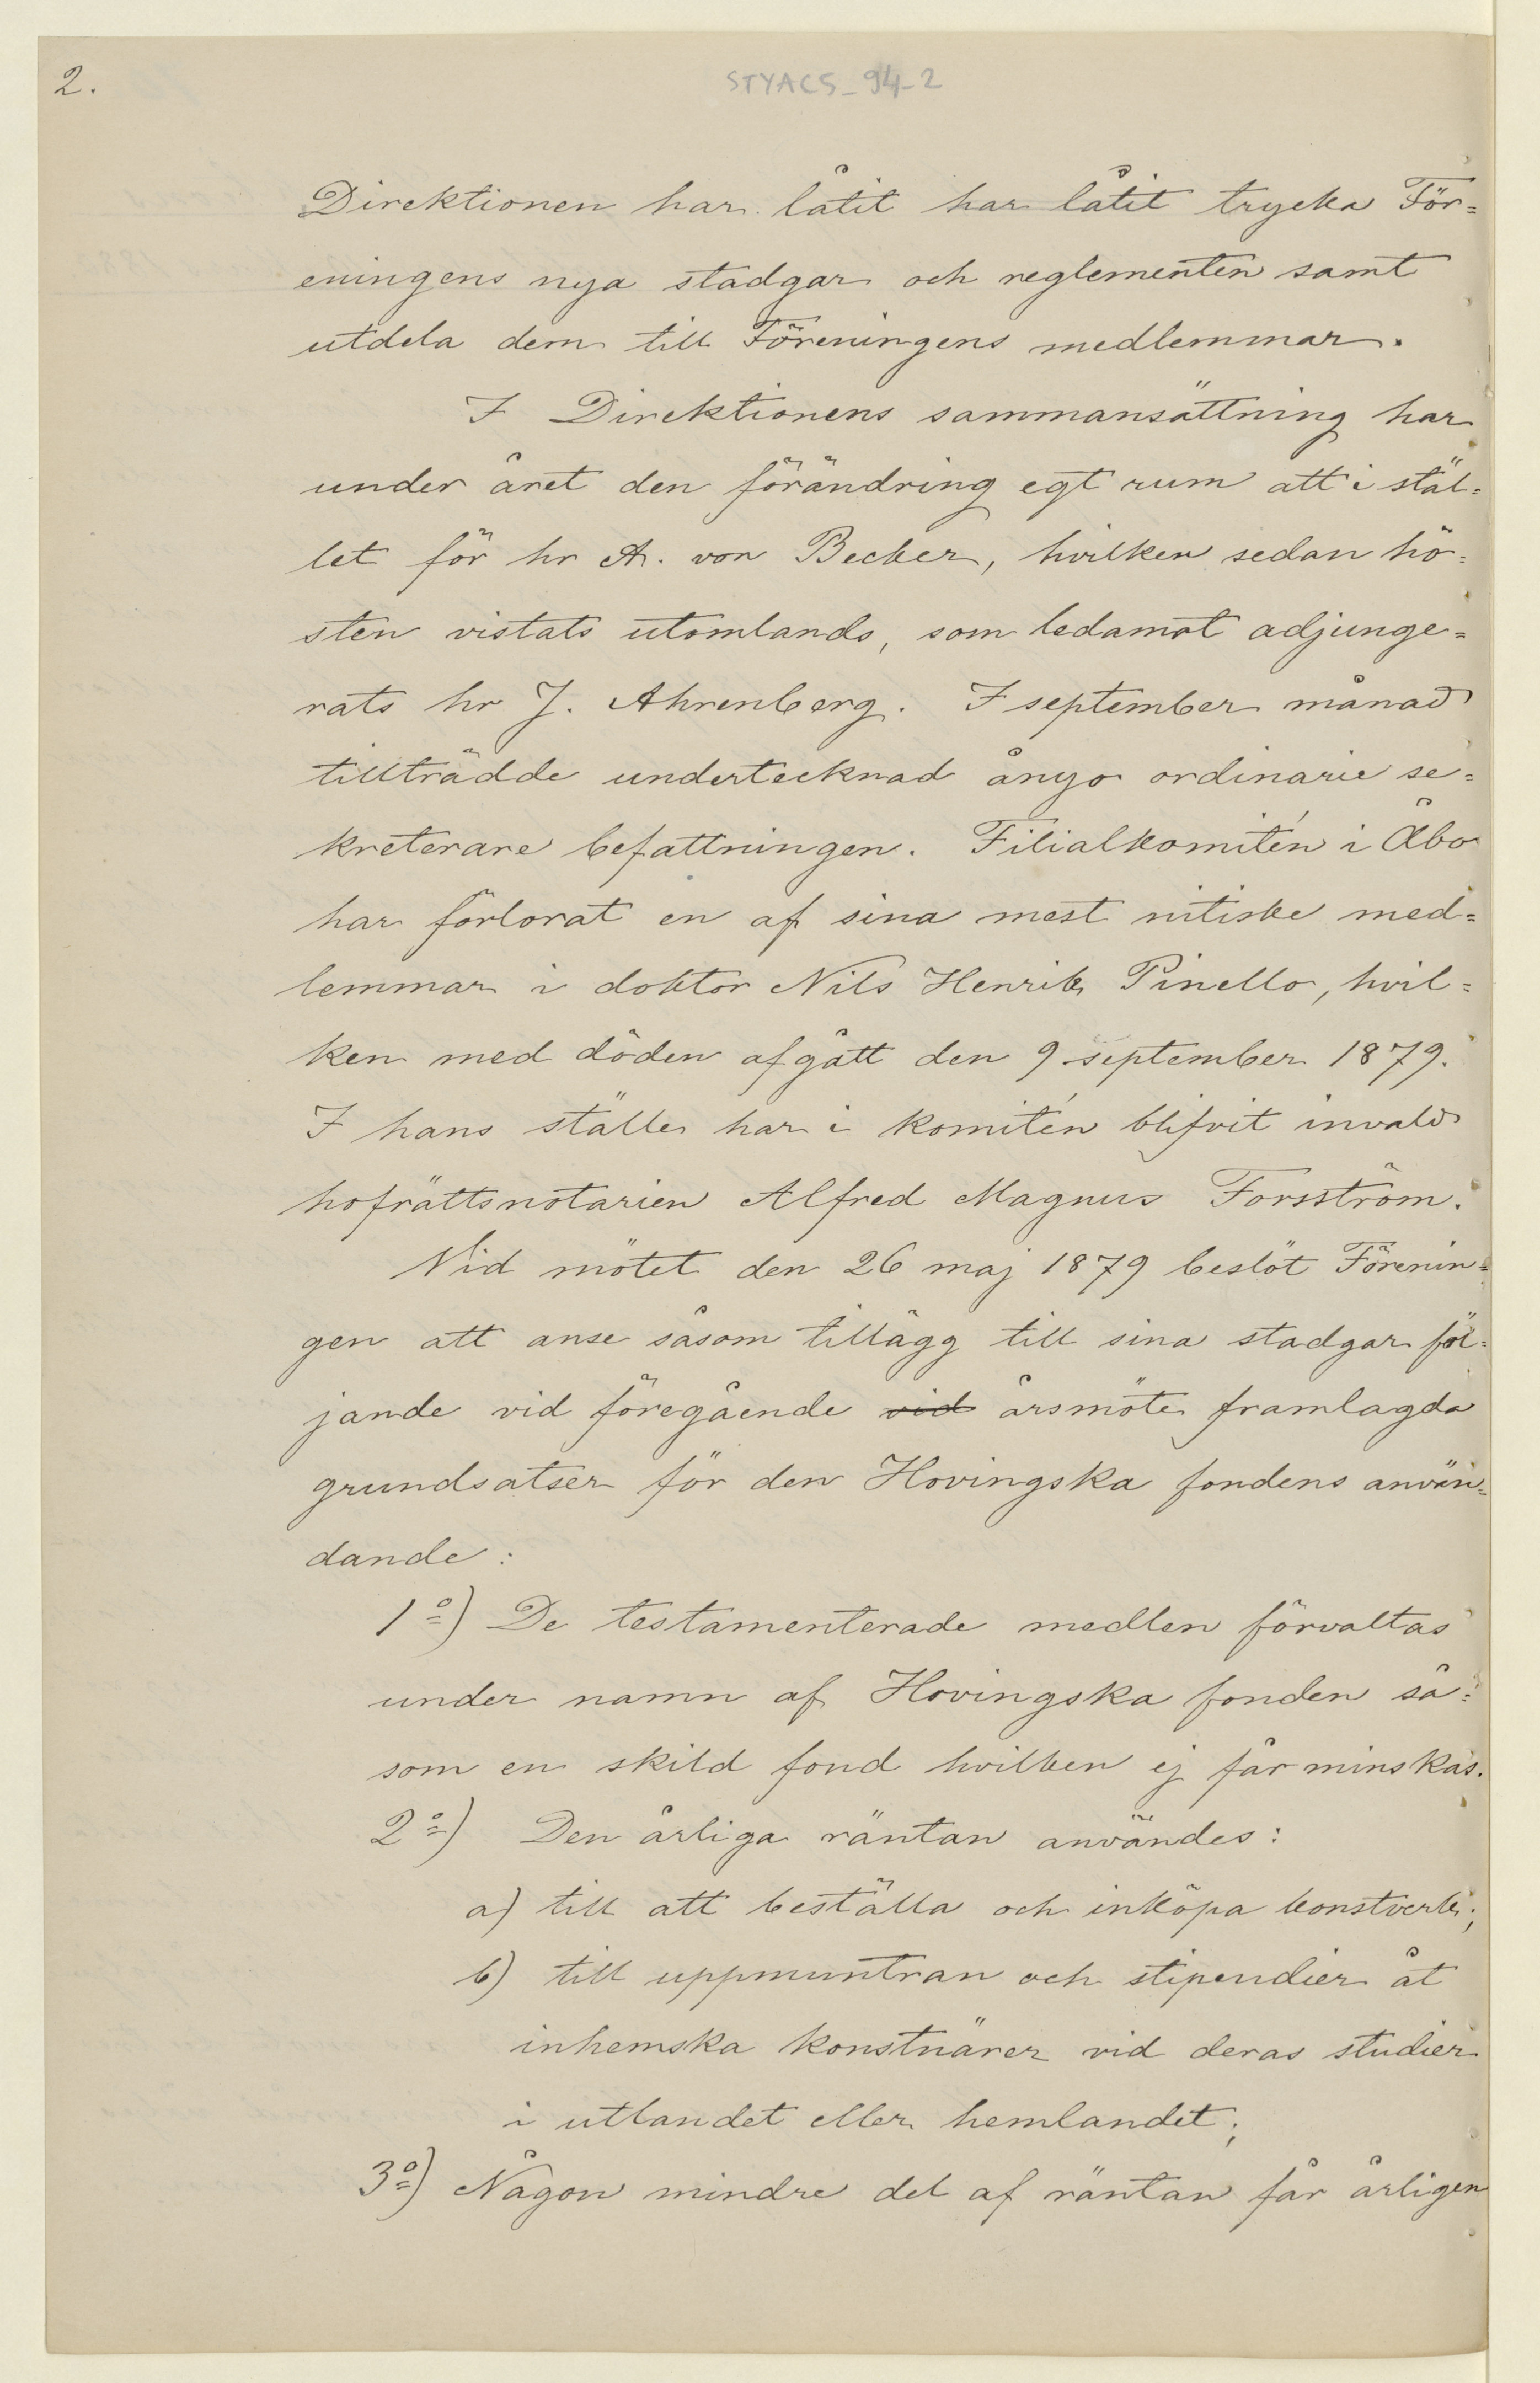 2.
STYACS_94-2
Direktionen har låtit har låtit trycka För=
eningens nya stadgar och reglementen samt
utdela dem till Föreningens medlemmar.
I Direktionens sammansättning har
under året den förändring egt rum att i stäl=
let för hr A. von Becker, hvilken sedan hö=
sten vistats utomlands, som ledamot adjunge=
rats hr J. Ahrenberg. I september månad
tillträdde undertecknad ånyo ordinarie se=
kreterare befattningen. Filialkomitén i Åbo
har förlorat en af sina mest nitiske med=
lemmar i doktor Nils Henrik Pinello, hvil=
ken med döden afgått den 9 september 1879.
I hans ställe har i komitén blifvit invald
hofrättsnotarien Alfred Magnus Forsström.
Vid mötet den 26 maj 1879 beslöt Förenin=
gen att anse såsom tillägg till sina stadgar föl=
jande vid föregående vid årsmöte framlagda
grundsatser för den Hovingska fondens använ=
dande:
1º) De testamenterade medlen förvaltas
under namn af Hovingska fonden så=
som en skild fond hvilken ej får minskas.
2º) Den årliga räntan användes:
a) till att beställa och inköpa konstverk;
b) till uppmuntran och stipendier åt
inhemska konstnärer vid deras studier
i utlandet eller hemlandet;
3º) Någon mindre del af räntan får årligen